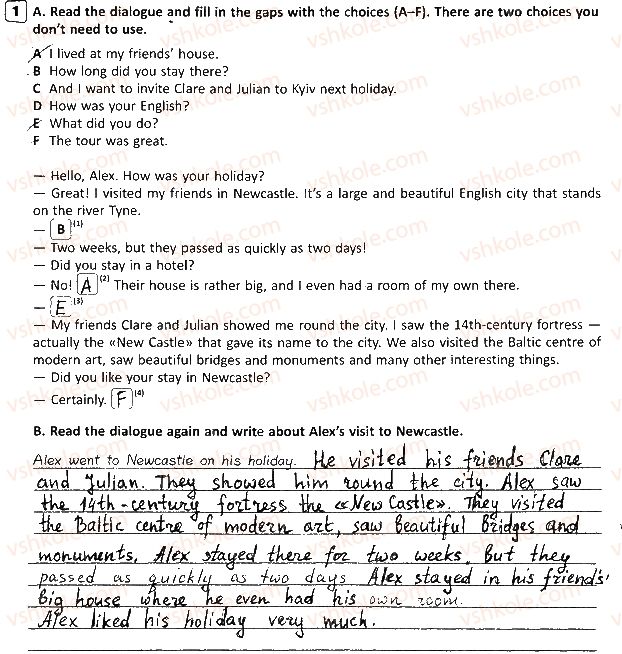 1 A. Read the dialogue and fill in the gaps with the choices (A–F). There are two choices you
don't need to use.
A I lived at my friends' house.
B How long did you stay there?
C And I want to invite Clare and Julian to Kyiv next holiday.
D How was your English?
E What did you do?
F The tour was great.
— Hello, Alex. How was your holiday?
— Great! I visited my friends in Newcastle. It's a large and beautiful English city that stands
on the river Tyne.
— B (1)
— Two weeks, but they passed as quickly as two days!
— Did you stay in a hotel?
— No! A (2) Their house is rather big, and I even had a room of my own there.
— E (3)
— My friends Clare and Julian showed me round the city. I saw the 14th-century fortress —
actually the «New Castle» that gave its name to the city. We also visited the Baltic centre of
modern art, saw beautiful bridges and monuments and many other interesting things.
— Did you like your stay in Newcastle?
— Certainly. F (4)
B. Read the dialogue again and write about Alex's visit to Newcastle.
Alex went to Newcastle on his holiday. He visited his friends Clare
and Julian. They showed him round the city. Alex saw
the 14th-century fortress the «New Castle». They visited
the Baltic centre of modern art, saw beautiful bridges and
monuments. Alex stayed there for two weeks. But they
passed as quickly as two days. Alex stayed in his friends'
big house where he even had his own room.
Alex liked his holiday very much.
vshkole.com